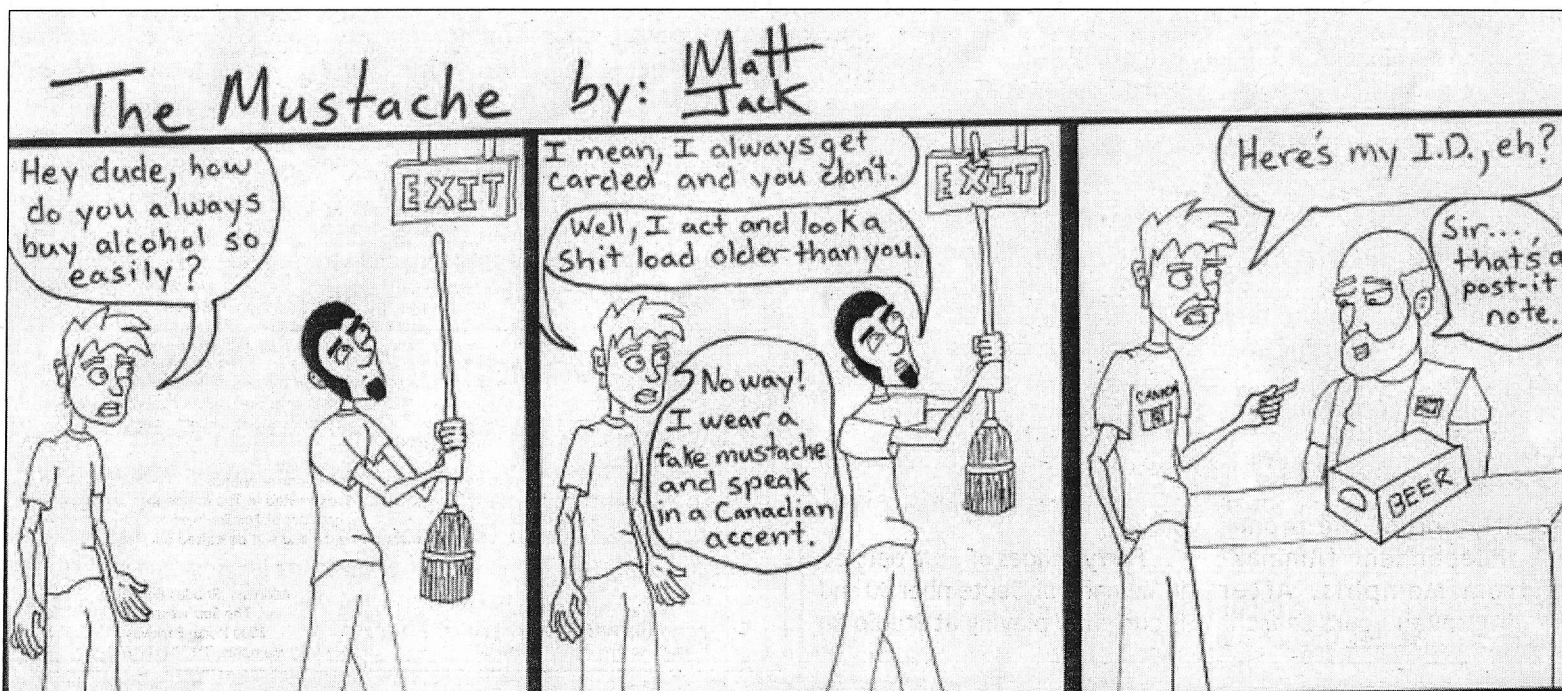 The Mustache by: Matt
Jack
Hey dude, how
do you always
buy alcohol so
easily?
EXIT
I mean, I always get
carded and you don't.
Well, I act and look a
shit load older than you.
No way!
I wear a
fake mustache
and speak
in a Canadian
accent.
EXIT
Here's my I.D., eh?
Sir...
that's a
post-it
note.
CANADA
BEER